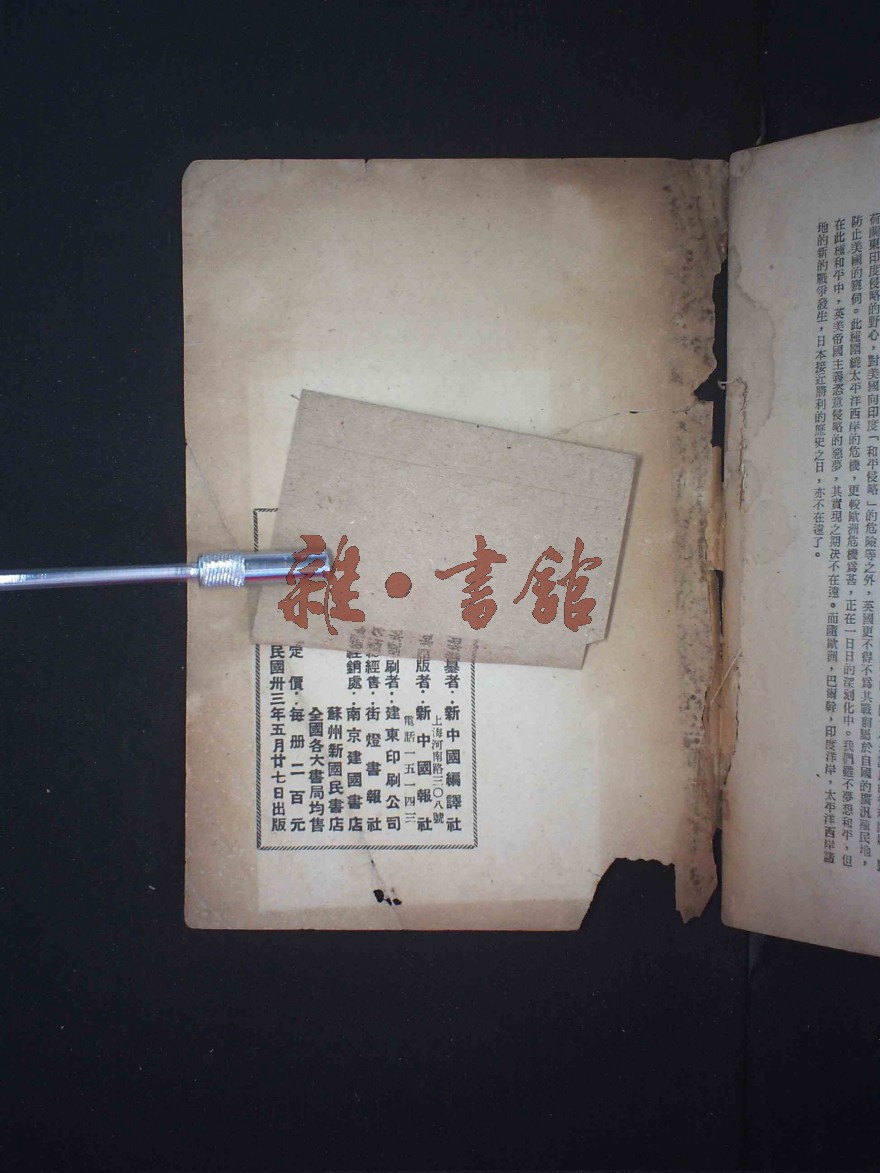 荷蘭東印度侵略的野心，對美國向印度「和平侵略」的危險等之外，英國更不得不爲其戰
防止美國的窺伺。此種圍繞太平洋西岸的危機，更較歐洲危機爲甚，正在一日日的深刻化中。我們雖不夢想和平，但
在此種和平中，英美帝國主義恣意侵略的惡夢，其實現之期決不在遠。而隨歐洲，巴爾幹，印度洋岸，太平洋西岸諸
地的新的戰爭發生，日本接近勝利的歷史之日，亦不在遠了。
雜·書館
者··新中國編譯社
上海河南路三〇八號
版者··新中國報社
電話一五一四三
刷者··建東印刷公司
經售··街燈書報社
經銷處··南京建國書店
蘇州新國民書店
全國各大書局均售
定價··每册二百元
民國卅三年五月廿七日出版